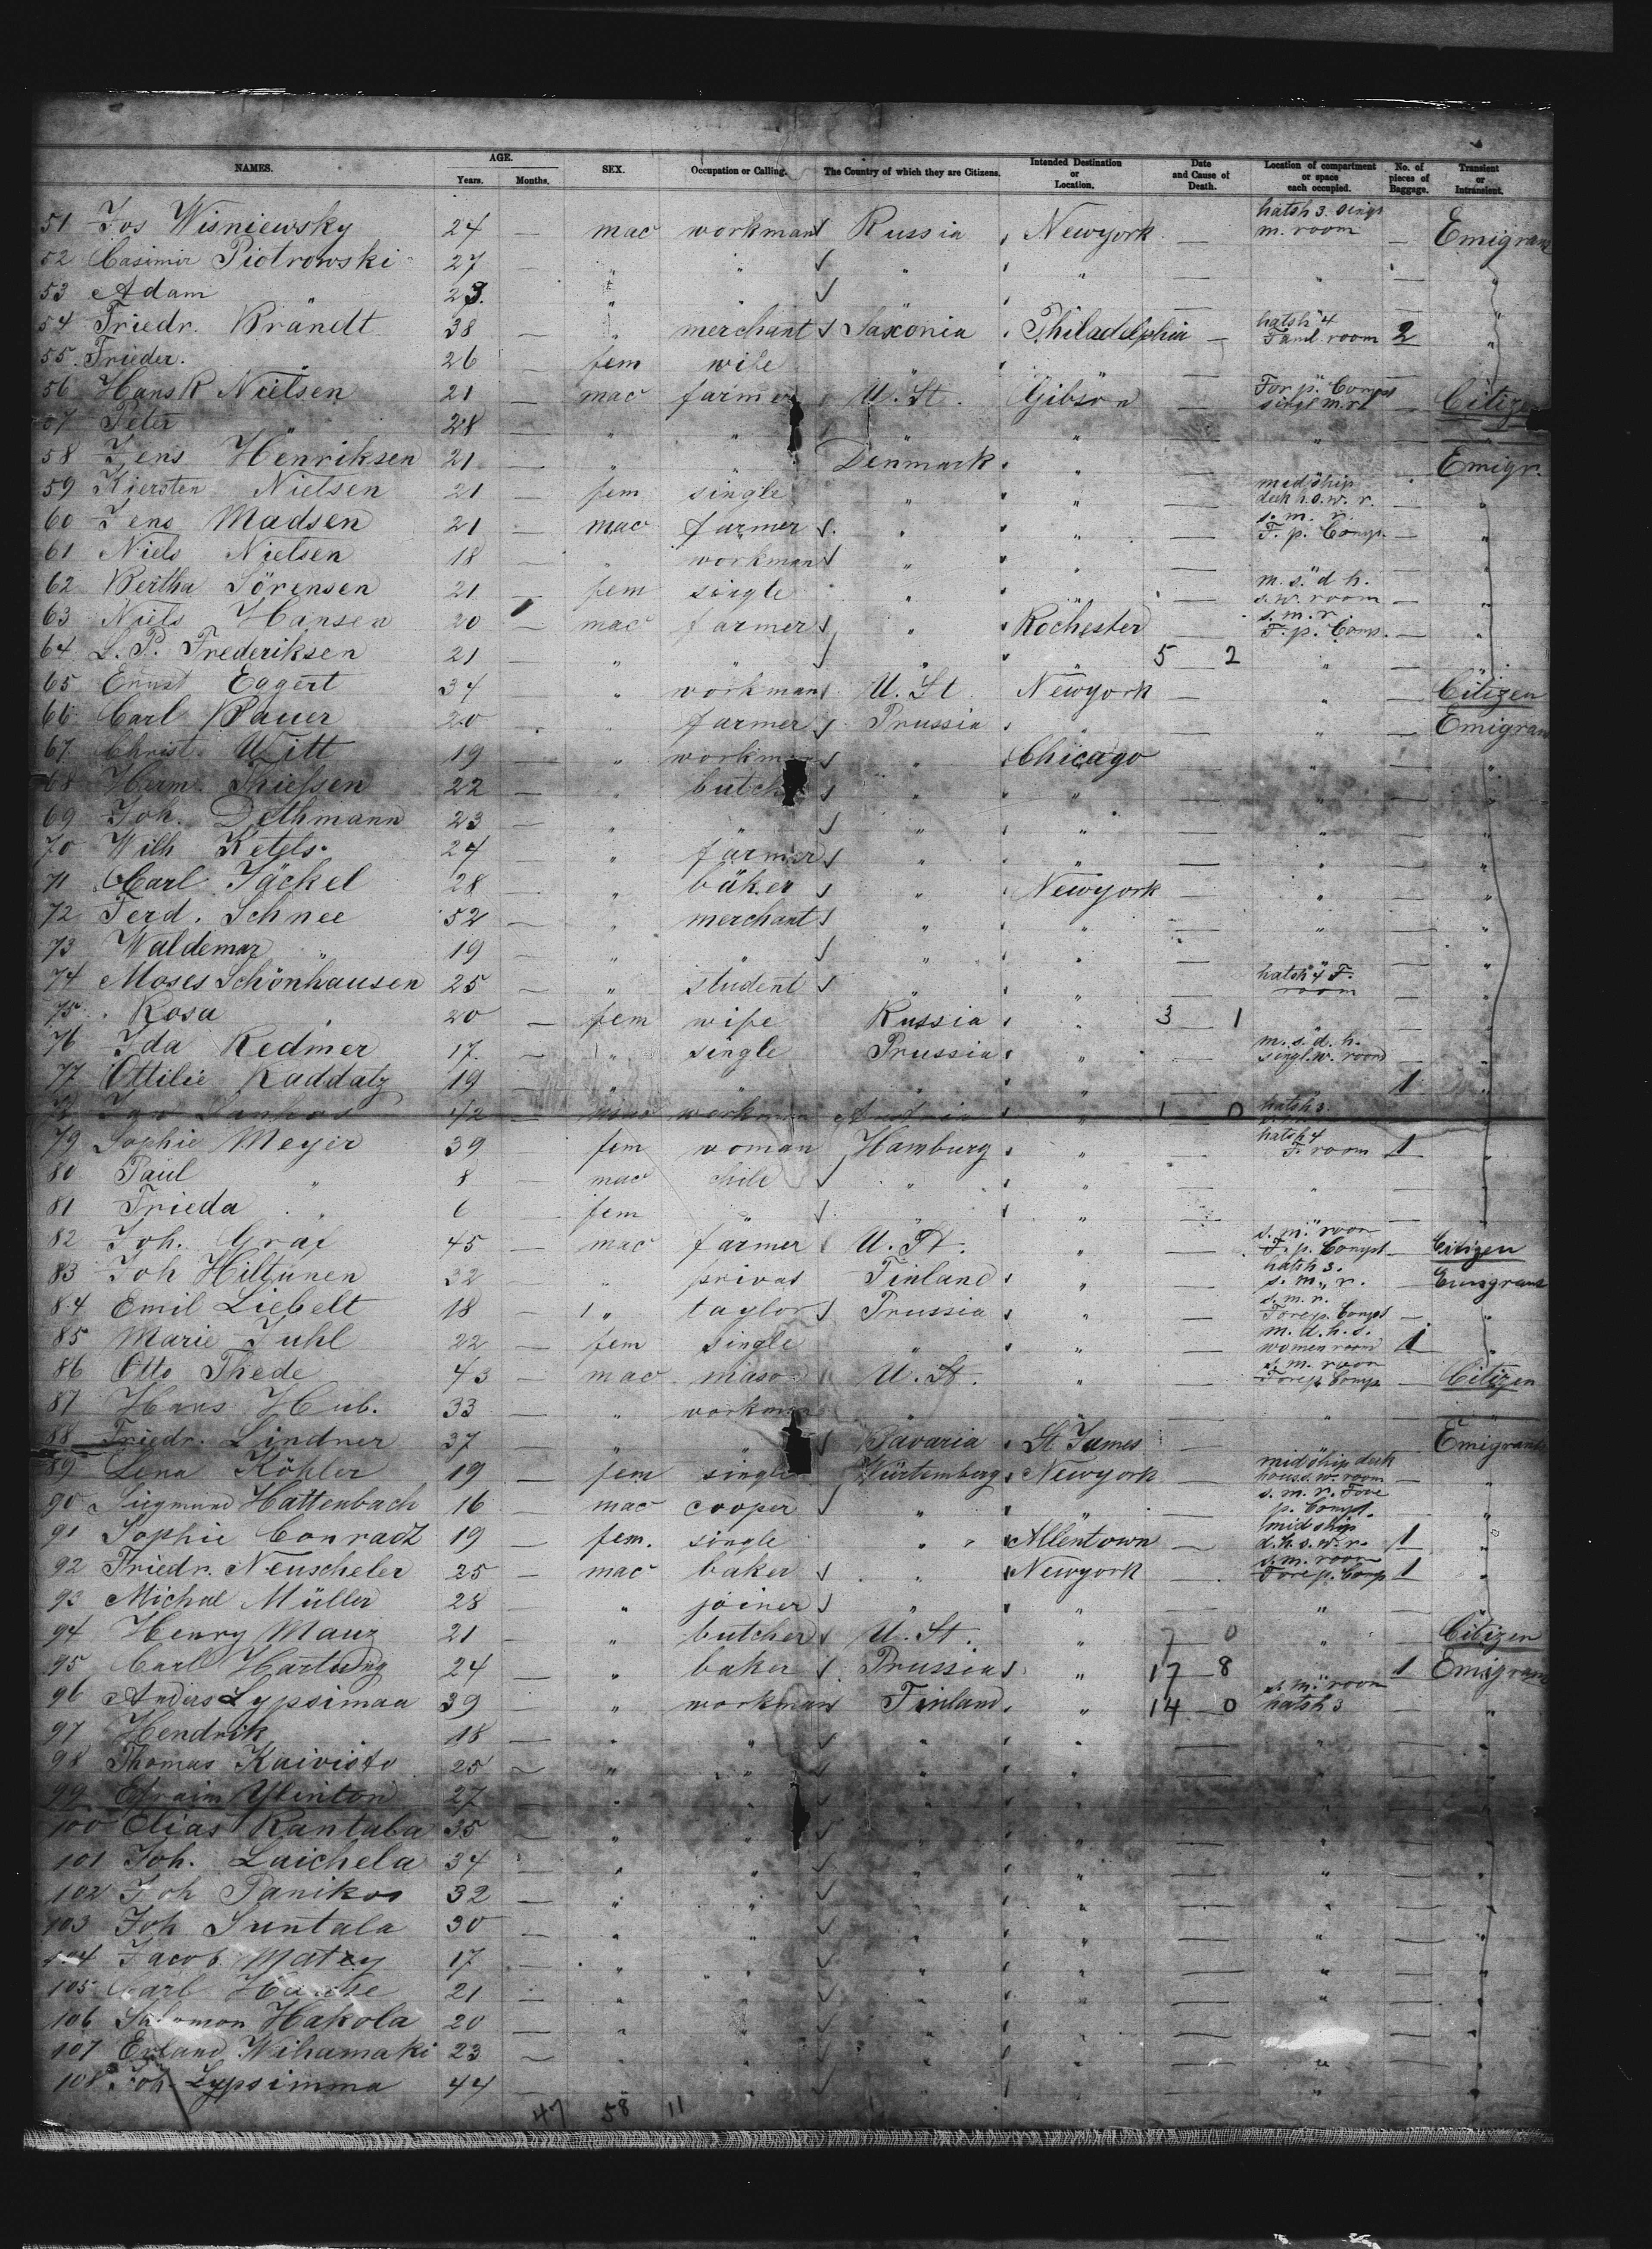 NAMES. AGE. Years. Months. SEX. Occupation or Calling. The Country of which they are Citizens. Intended Destination or Location. Date and Cause of Death. Location of compartment or space each occupied. No. of pieces of Baggage. Transient or Intransient.
51 Jos Wisniewsky 24 — mac workman Russia Newyork — hatsh 3. singl m. room — Emigran
52 Casimir Piotrowski 27 — " " " " — " — "
53 Adam " 23. " " " " — "
54 Friedr. Brandt 38 — " merchant Saxonia Philadelphia — hatsh 4 Famil. room 2 "
55 Frieder. " 26 — fem wife " " —
56 Hans R Nielsen 21 — mac farmer U. St. Gibson — For p. Comp singl m. r. — Citizen
57 Peter " 28 — " " " " — " —
58 Jens Henriksen 21 — " " Denmark " — Emigr.
59 Kjersten Nielsen 21 — fem single " " — midship deck h.s.w. r. "
60 Jens Madsen 21 — mac farmer " " — s. m. r. F. p. Comp. — "
61 Niels Nielsen 18 — " workman " " — " — "
62 Bertha Sörensen 21 — fem single " " — m. s. d h. s. w. room — "
63 Niels Hansen 20 — mac farmer " Rochester — s. m. r. F. p. Comp. — "
64 L. P. Frederiksen 21 — " " " " 5 2 " — "
65 Ernst Eggert 34 — " workman U. St Newyork — " — Citizen
66 Carl Bauer 20 — " farmer Prussia " — " — Emigran
67 Christ. Witt 19 — " workman " Chicago — " — "
68 Herm. Thiessen 22 — " butch " " — " — "
69 Joh. Dethmann 23 — " " " " — " — "
70 Wilh Ketels 24 — " farmer " " — " — "
71 Carl Jäckel 28 — " bäker " Newyork — " — "
72 Ferd. Schnee 52 — " merchant " " — " — "
73 Waldemar " 19 — " " " " — " — "
74 Moses Schönhausen 25 — " student " " — hatsh 4 F. room — "
75 Rosa " 20 — fem wife Russia " 3 1 " — "
76 Ida Redmer 17 — " single Prussia " — m. s. d. h. singl. w. room — "
77 Ottilie Raddatz 19 — " " " " — " 1 "
42 — workman " 1 0 hatsh 3.
79 Sophie Meyer 39 — fem woman Hamburg " — hatsh 4 F. room 1 "
80 Paul " 8 — mac chile " " — " — "
81 Frieda " 6 — fem " " " — " —
82 Joh. Graf 45 — mac farmer U. St. " — s. m. room F. p. Compt — Citizen
83 Joh Hiltunen 32 — " privat Finland " — hatsh 3. s. m. r. — Emigran
84 Emil Liebelt 18 — " taylor Prussia " — s. m. r. Fore p. Compt — "
85 Marie Juhl 22 — fem single " " — m. d. h. s. women room 1 "
86 Otto Thede 43 — mac mason U. St. " — s. m. room Fore p. Comp — Citizen
87 Hans Hub. 33 — " workman " " — " — "
88 Friedr. Lindner 37 — " " Bavaria St James — Emigrant
89 Lena Köhler 19 — fem single Würtemberg Newyork — midship deck house. w. room — "
90 Siegmund Hattenbach 16 — mac cooper " " — s. m. r. Fore p. Compt. — "
91 Sophie Conradt 19 — fem. single " Allentown — midship d. h. s. w. r. 1 "
92 Friedr. Neuscheler 25 — mac baker " Newyork — s. m. room Fore p. Comp 1 "
93 Michal Müller 28 — " joiner " " — " — "
94 Henry Mauz 21 — " butcher U. St. " 7 0 " — Citizen
95 Carl Hartung 24 — " baker Prussia " 17 8 " 1 Emigran
96 Anders Lypsimaa 39 — " workman Finland " 14 0 s. m. room hatsh 3 — "
97 Hendrik 18 — " " " " — " — "
98 Thomas Kaivisto 25 — " " " " — " — "
99 Efraim Ylinton 27 — " " " " — " — "
100 Elias Rantaba 35 — " " " " — " — "
101 Joh. Laichela 34 — " " " " — " — "
102 Joh Panikos 32 — " " " " — " — "
103 Joh Suntala 30 — " " " " — " — "
104 Jacob Matey 17 — " " " " — " — "
105 Carl 21 — " " " " — " — "
106 Salomon Hakola 20 — " " " " — — "
107 Erland Wihamaki 23 — " " " " — " — "
108 Joh. Lypsimma 44 — " " " " — " — "
47 58 11